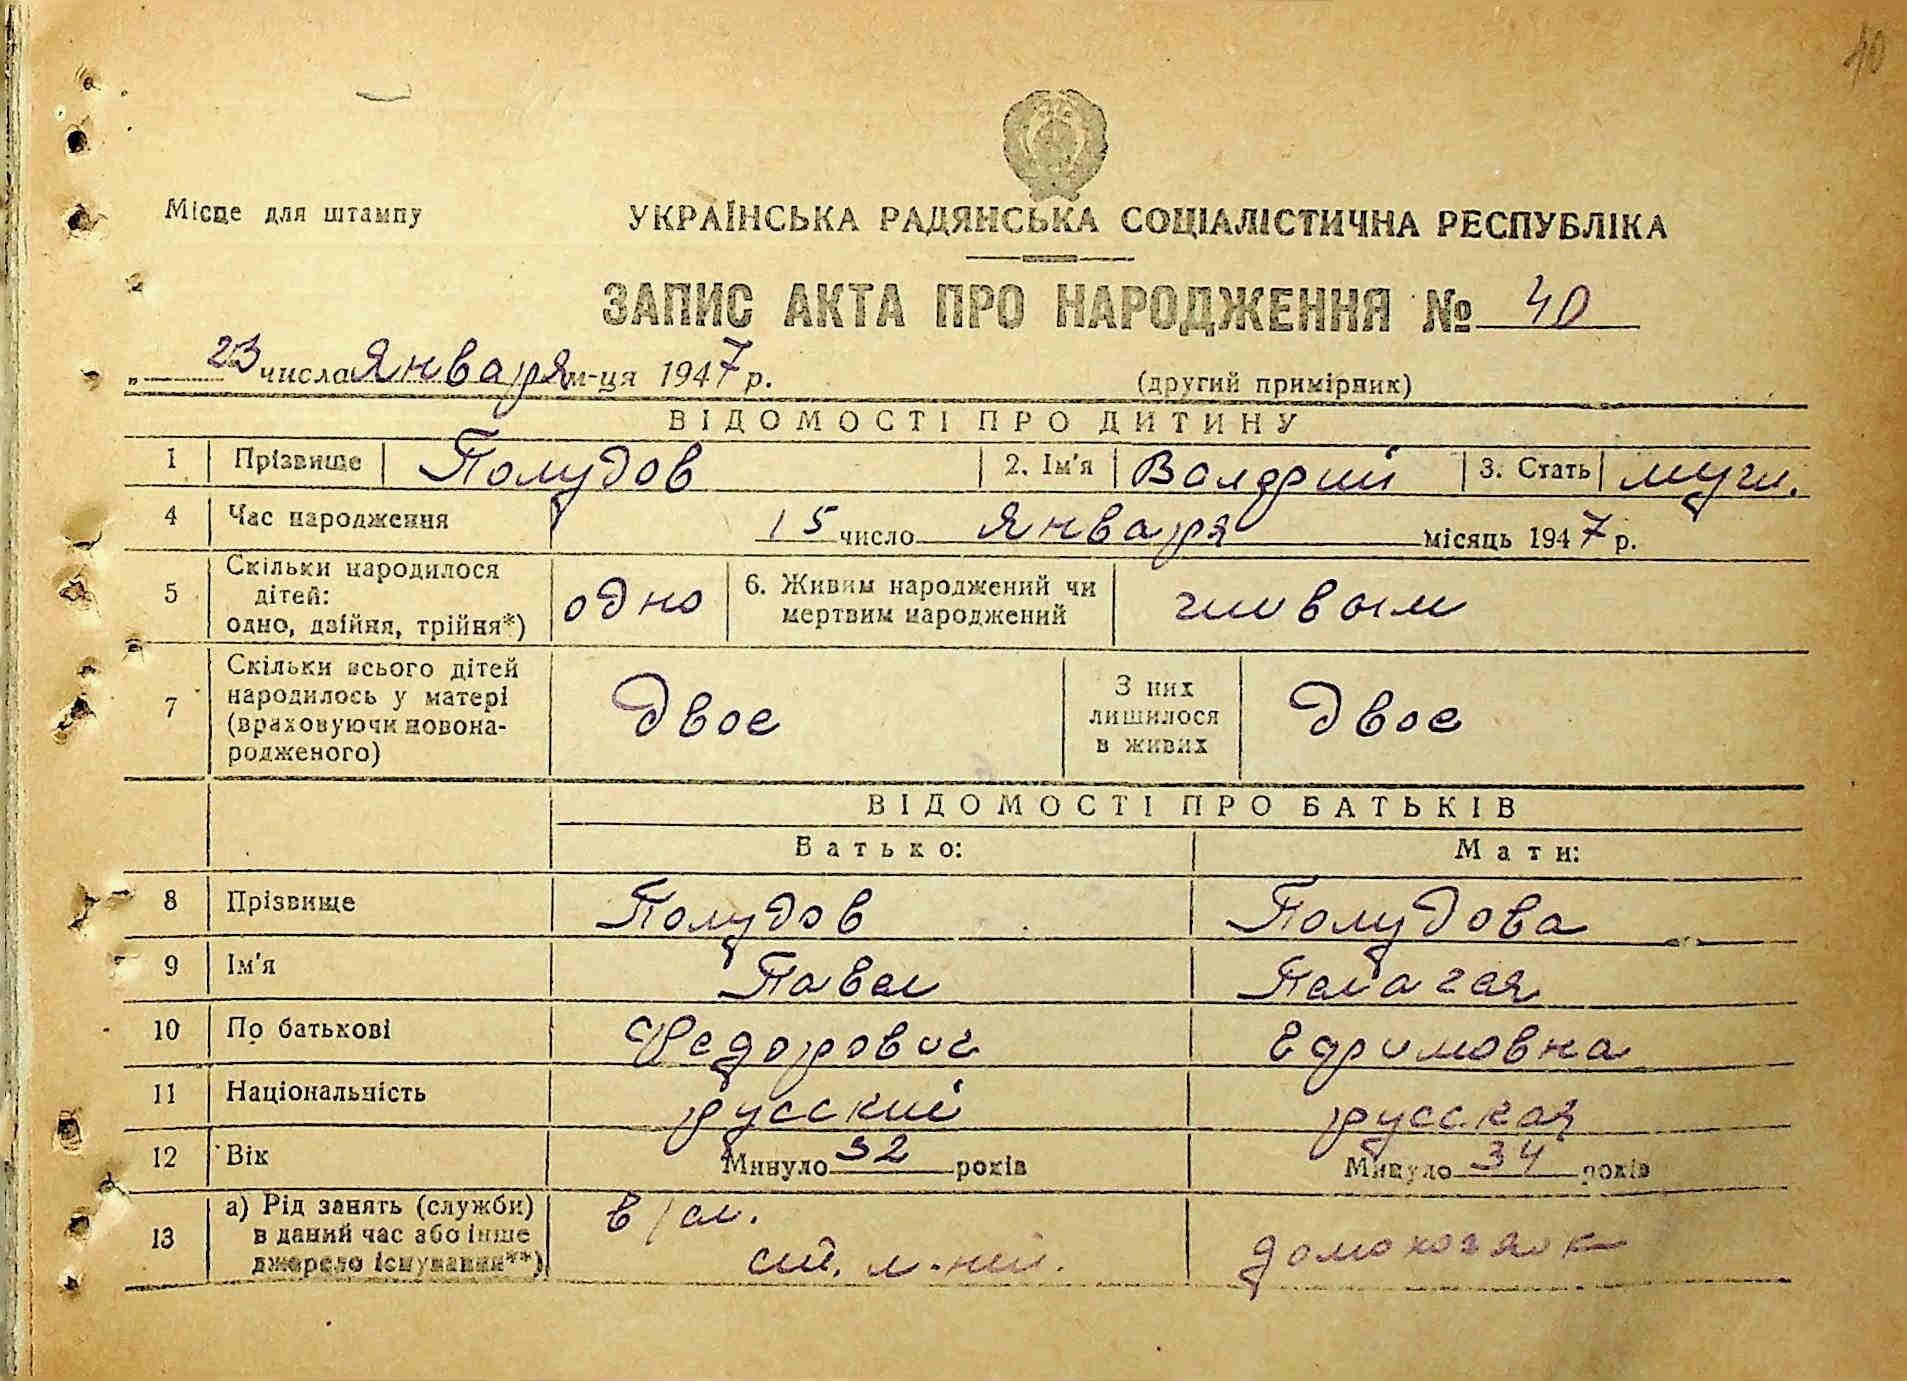 40
Місце для штампу
УКРАЇНСЬКА РАДЯНСЬКА СОЦІАЛІСТИЧНА РЕСПУБЛІКА
ЗАПИС АКТА ПРО НАРОДЖЕННЯ № 40
„ 23 числа Января м-ця 1947 р.
(другий примірник)
ВІДОМОСТІ ПРО ДИТИНУ
1 Прізвище Полудов 2. Ім'я Валерий 3. Стать муж.
4 Час народження 15 число Января місяць 1947 р.
5 Скільки народилося
дітей:
одно, двійня, трійня*) одно
6. Живим народжений чи
мертвим народжений живым
7 Скільки всього дітей
народилось у матері
(враховуючи новона-
родженого) Двое
З них
лишилося
в живих Двое
ВІДОМОСТІ ПРО БАТЬКІВ
Батько: Мати:
8 Прізвище Полудов Полудова
9 Ім'я Павел Пелагея
10 По батькові Федорович Ефримовна
11 Національність русский русская
12 Вік Минуло 32 років Минуло 34 років
13 а) Рід занять (служби)
в даний час або інше
джерело існування**)
в/сл.
домохозяйк